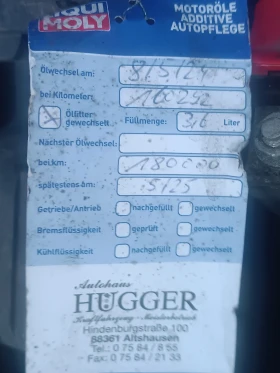 LIQUI MOLY
MOTORÖLE
ADDITIVE
AUTOPFLEGE
Ölwechsel am: 8/5/24
bei Kilometer: 160292
Ölfilter gewechselt Füllmenge: 3,6 Liter
Nächster Ölwechsel:
bei km: 180000
spätestens am: 5/25
Getriebe/Antrieb nachgefüllt gewechselt
Bremsflüssigkeit geprüft gewechselt
Kühlflüssigkeit nachgefüllt gewechselt
Autohaus
HUGGER
Kraftfahrzeug - Meisterbetrieb
Hindenburgstraße 100
88361 Altshausen
Tel.: 0 75 84 / 8 55
Fax: 0 75 84 / 21 33